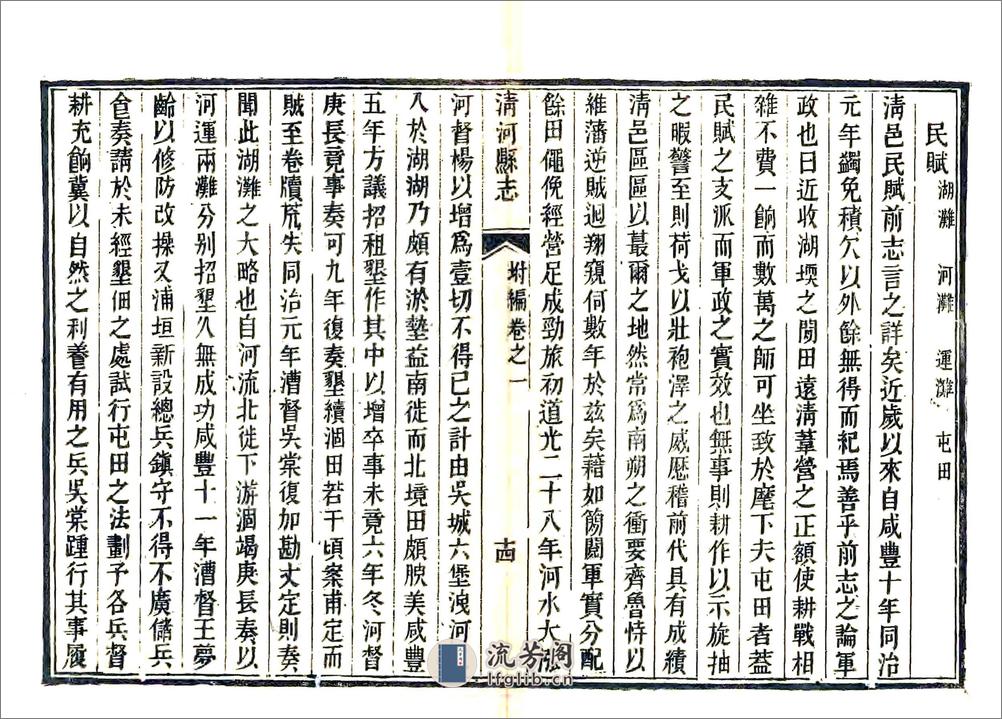 民賦 湖灘 河灘 運灘 屯田
淸邑民賦前志言之詳矣近歲以來自咸豐十年同治
元年蠲免積欠以外餘無得而紀焉善乎前志之論軍
政也曰近收湖堧之閒田遠淸葦營之正額使耕戰相
雜不費一餉而數萬之師可坐致於麾下夫屯田者葢
民賦之支派而軍政之實效也無事則耕作以示旋抽
之暇警至則荷戈以壯袍澤之威歷稽前代具有成績
淸邑區區以蕞爾之地然常爲南朔之衝要齊魯恃以
維藩逆賊迴翔窺伺數年於兹矣藉如簡閱軍實分配
餘田僶俛經營足成勁旅初道光二十八年河水大漲
淸河縣志
坿編卷之一
十四
河督楊以增爲壹切不得已之計由吳城六堡洩河
入於湖湖乃頗有淤墊益南徙而北境田頗腴美咸豐
五年方議招租墾作其中以增卒事未竟六年冬河督
庚長竟事奏可九年復奏墾續涸田若干頃案甫定而
賊至卷牘荒失同治元年漕督吳棠復加勘丈定則奏
聞此湖灘之大略也自河流北徙下游涸竭庚長奏以
河運兩灘分别招墾久無成功咸豐十一年漕督王夢
齡以修防改操又浦垣新設總兵鎭守不得不廣儲兵
食奏請於未經墾佃之處試行屯田之法劃予各兵督
耕充餉冀以自然之利養有用之兵吳棠踵行其事履
流芳閣
lfglib.cn